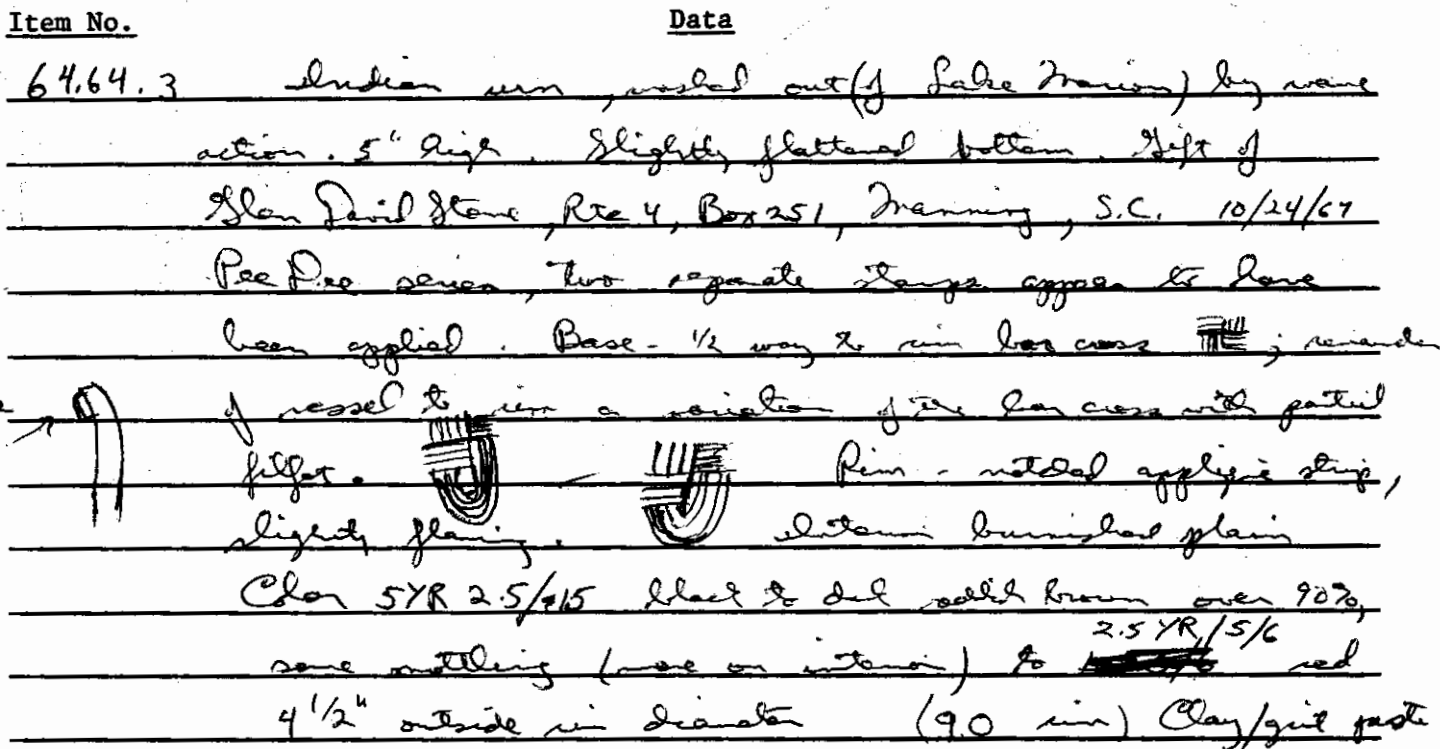 Item No. Data
64.64.3 Indian urn, washed out (of Lake Marion) by wave
action. 5" high. Slightly flattened bottom. Gift of
Glen David Stone, Rte 4, Box 251, Manning, S.C. 10/24/67
Pee Dee series, two separate stamps appear to have
been applied. Base - 1/2 way to rim bar cross ; remainder
of vessel to rim a variation of the bar cross with partial
filfot. Rim - notched applique strip,
slightly flaring. Interior burnished plain
Color 5YR 2.5/ black to dark reddish brown over 90%,
2.5 YR/5/6
some mottling (more on interior) to red
4 1/2" outside rim diameter (90 rim) Clay/grit paste